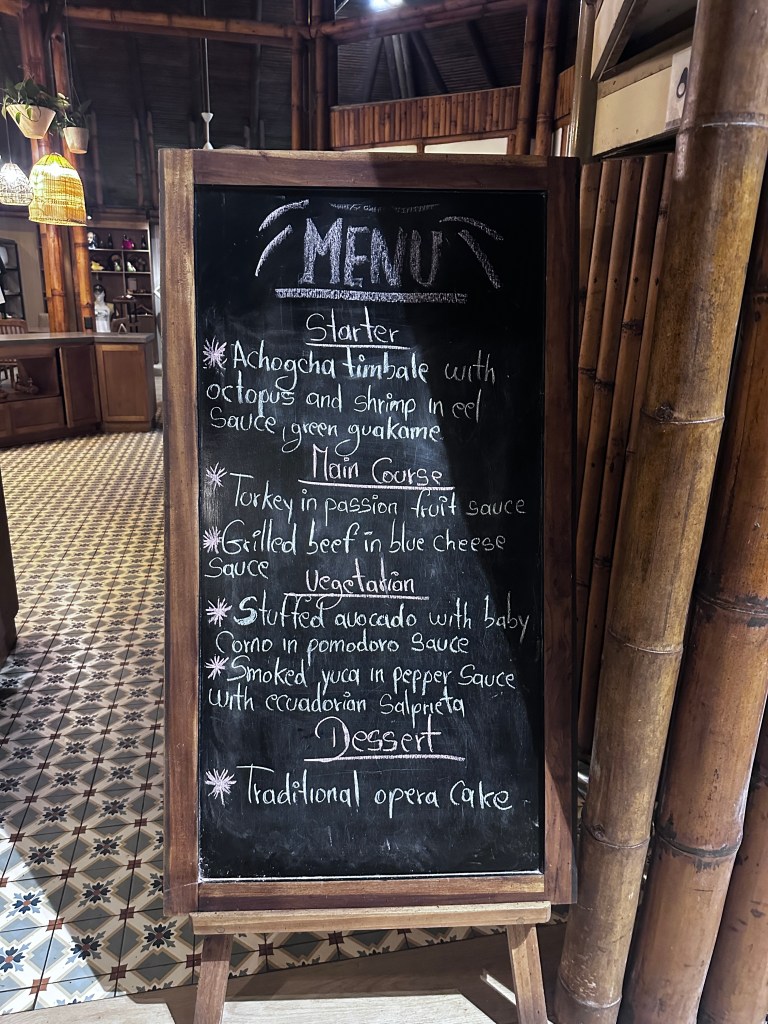 MENU
Starter
Achogcha timbale with
octopus and shrimp in eel
Sauce, green guakame
Main Course
Turkey in passion fruit sauce
Grilled beef in blue cheese
sauce
Vegetarian
Stuffed avocado with baby
Corno in pomodoro sauce
Smoked yuca in pepper Sauce
with ecuadorian Salprieta
Dessert
Traditional opera Cake